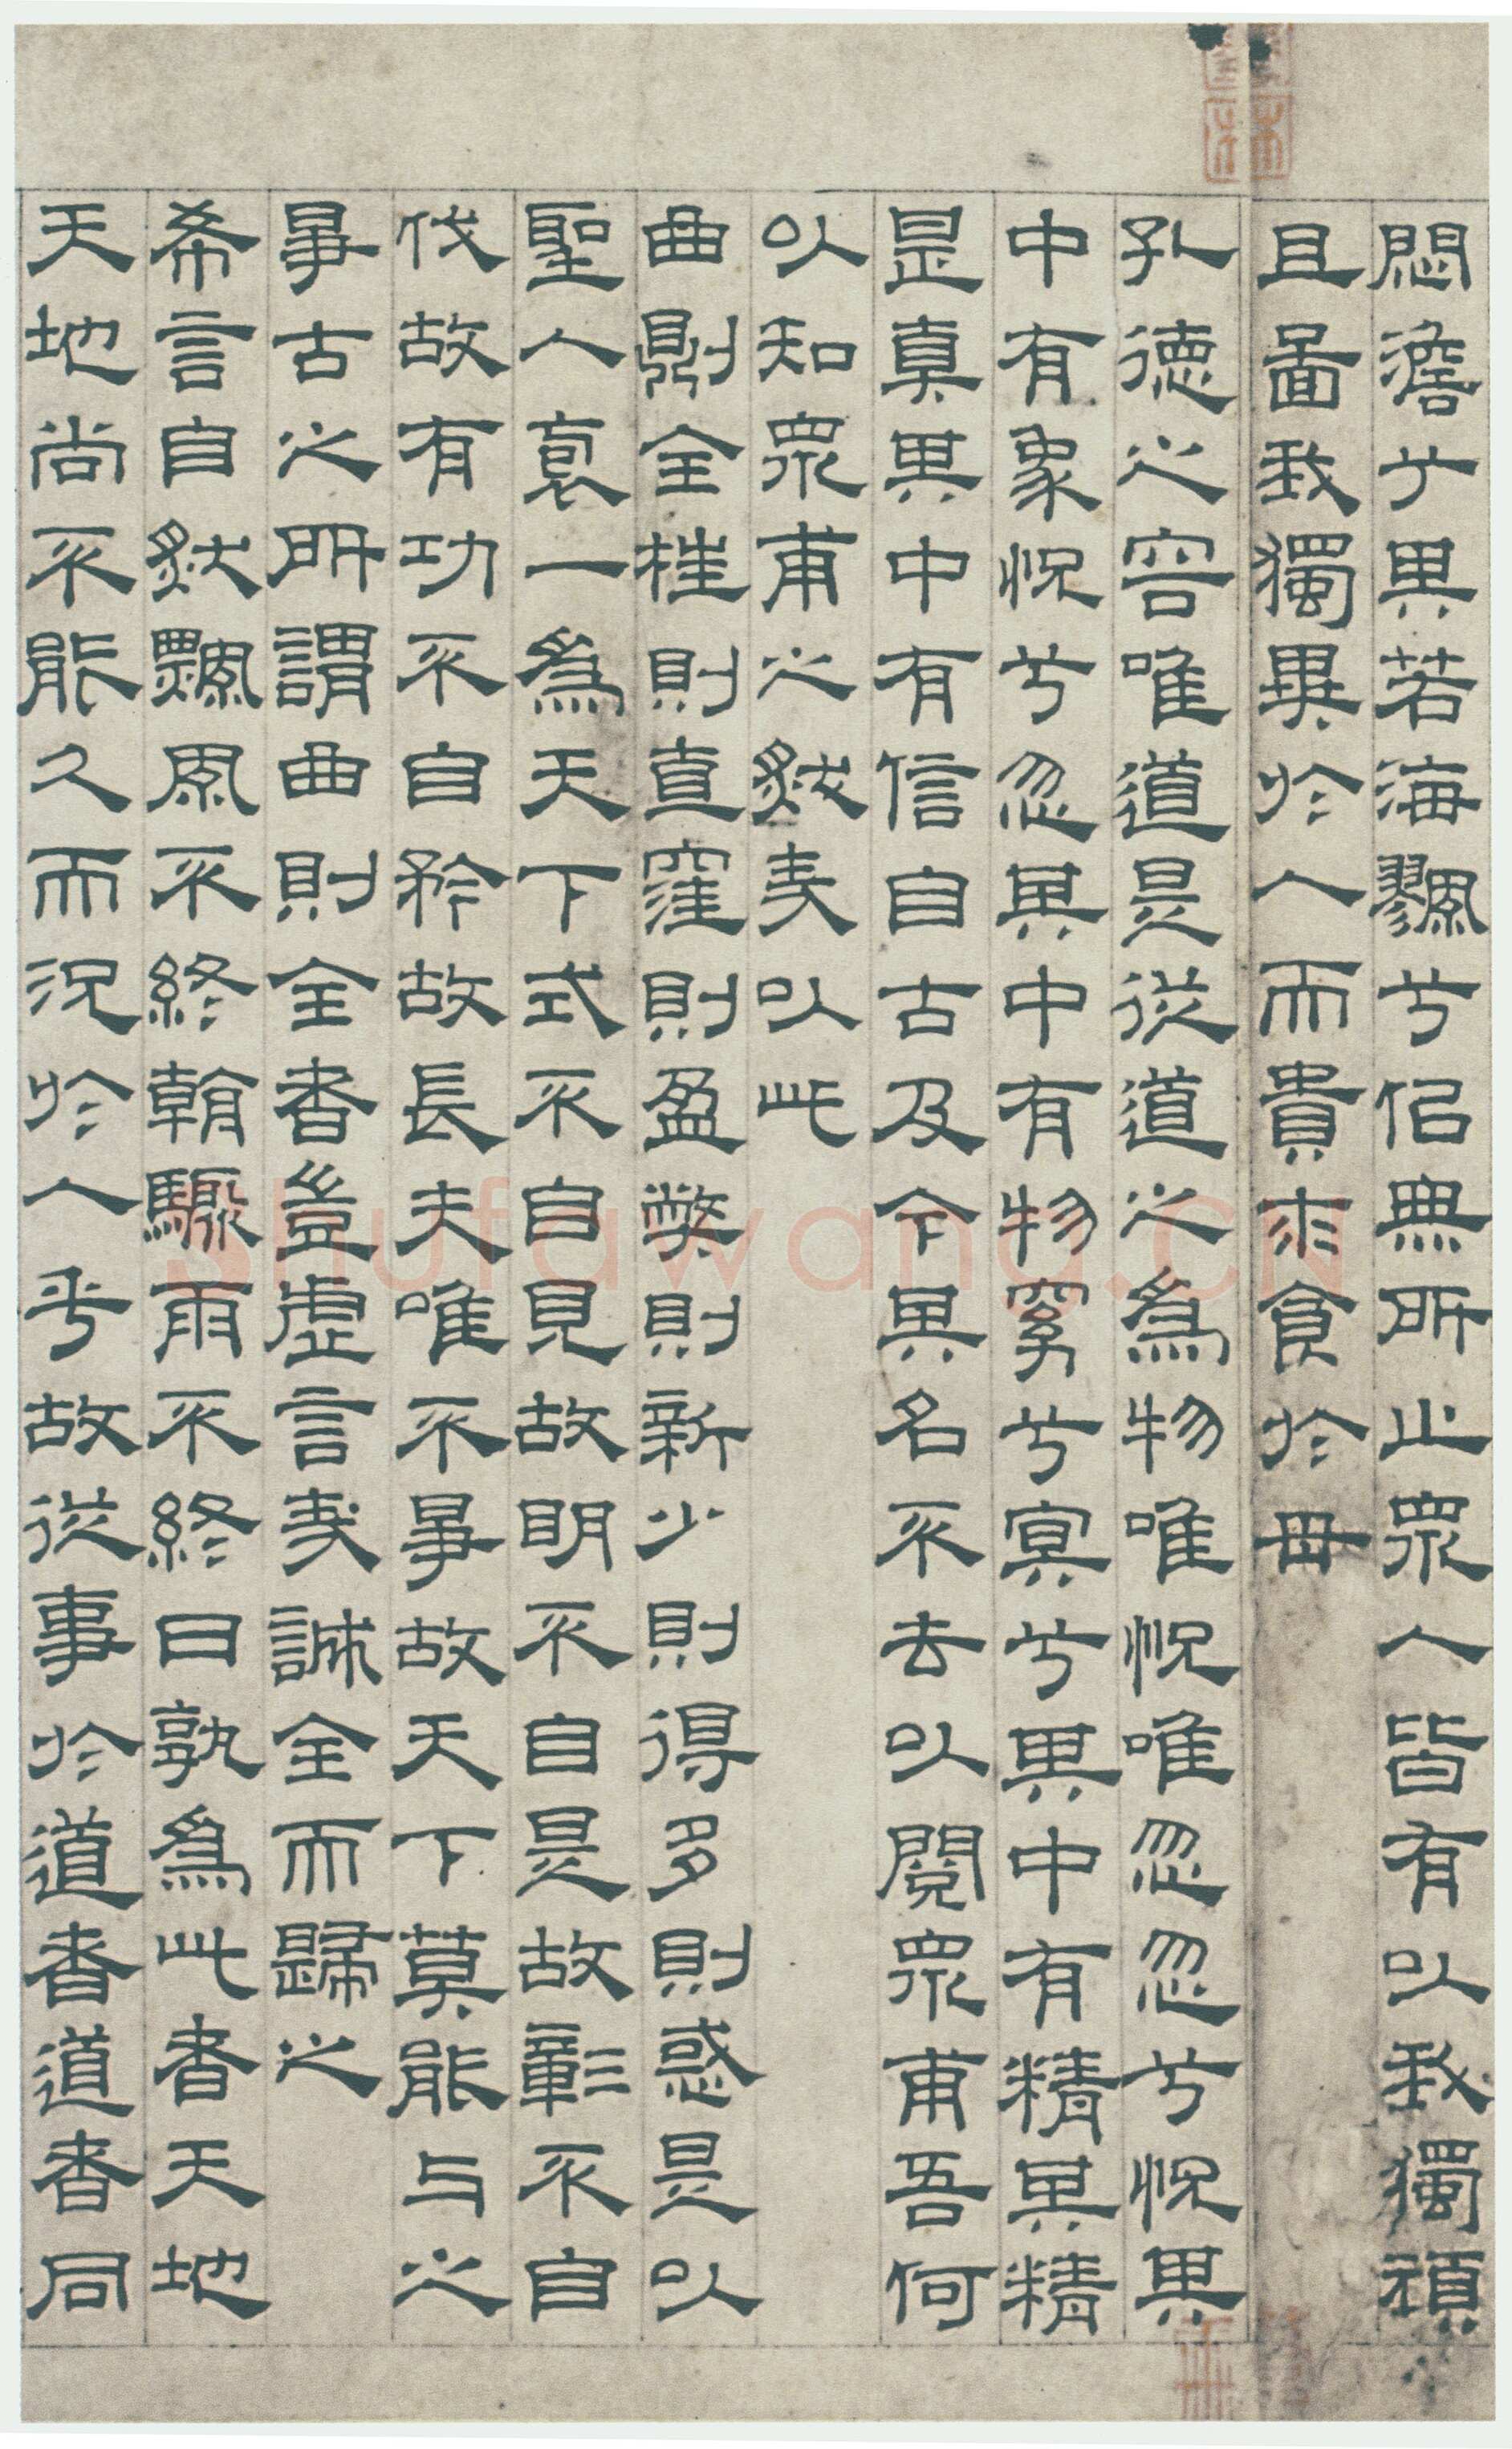 悶澹兮其若海飂兮似無所止衆人皆有以我獨頑
且啚我獨異於人而貴求食於母
孔德之容唯道是從道之爲物唯怳唯忽忽兮怳其
中有象怳兮忽其中有物窈兮冥兮其中有精其精
是真其中有信自古及今其名不去以閱衆甫吾何
以知衆甫之然哉以此
曲則全枉則直窪則盈獘則新少則得多則惑是以
聖人裒一爲天下式不自見故明不自是故彰不自
伐故有功不自矜故長夫唯不爭故天下莫能与之
爭古之所謂曲則全者豈虛言哉誠全而歸之
希言自然飄風不終朝驟雨不終日孰爲此者天地
天地尚不能久而況於人乎故從事於道者道者同
Shufawang.CN